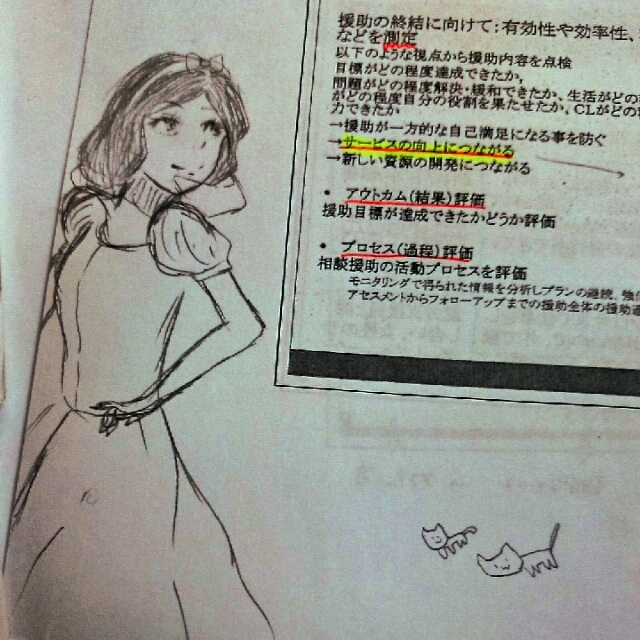 援助の終結に向けて：有効性や効率性、
などを測定
以下のような視点から援助内容を点検
目標がどの程度達成できたか，
問題がどの程度解決・緩和できたか，生活がどの
がどの程度自分の役割を果たせたか，CLがどの
力できたか
→援助が一方的な自己満足になる事を防ぐ
→サービスの向上につながる
→新しい資源の開発につながる
・ アウトカム（結果）評価
援助目標が達成できたかどうか評価
・ プロセス（過程）評価
相談援助の活動プロセスを評価
モニタリングで得られた情報を分析しプランの継続，強
アセスメントからフォローアップまでの援助全体の援助過